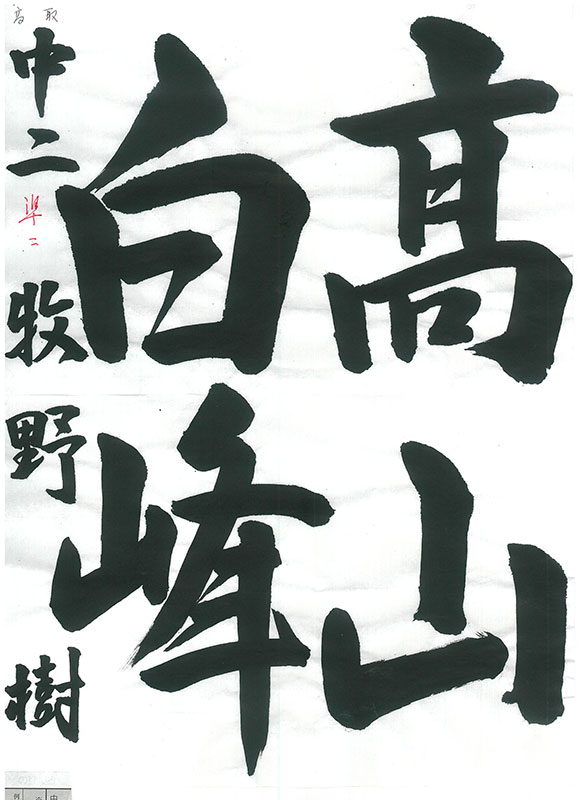 髙山
白峰
高取
中二 準二 牧野樹